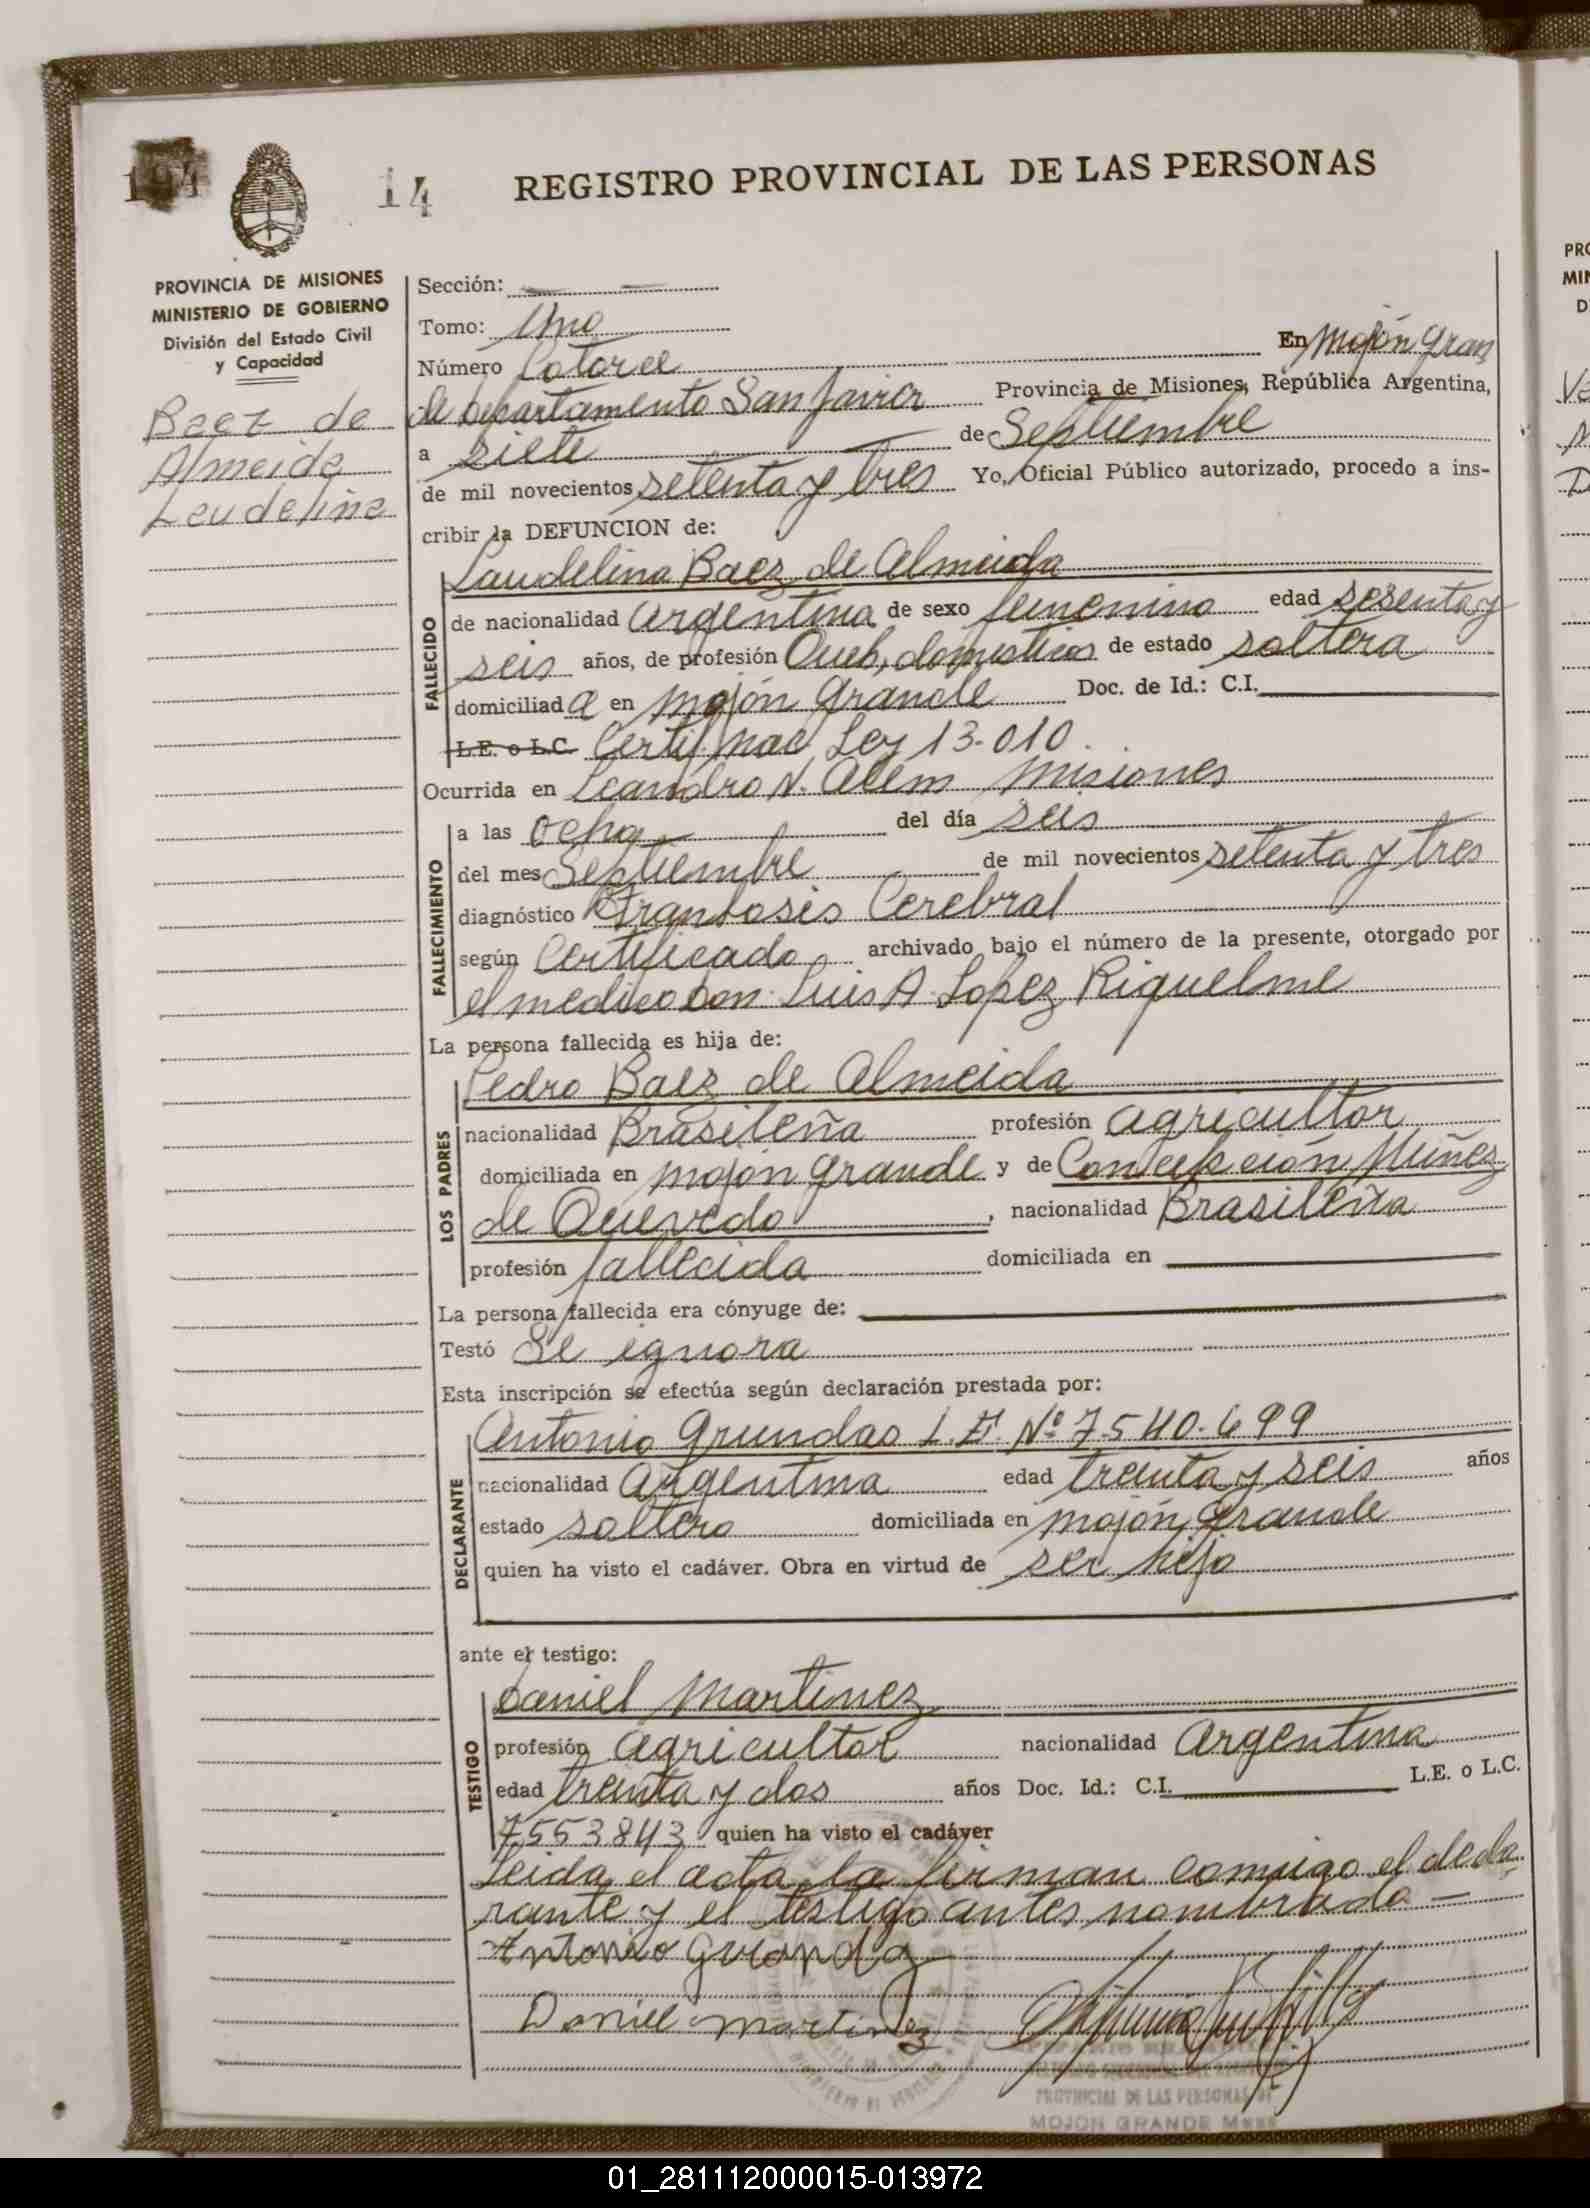 14
REGISTRO PROVINCIAL DE LAS PERSONAS
PROVINCIA DE MISIONES
MINISTERIO DE GOBIERNO
División del Estado Civil
y Capacidad
Baez de
Almeida
Laudelina
Sección:
Tomo: Uno
Número Catorce En Mojón Gran
de departamento San Javier Provincia de Misiones, República Argentina,
a siete de Septiembre
de mil novecientos setenta y tres Yo, Oficial Público autorizado, procedo a ins-
cribir la DEFUNCION de:
Laudelina Baez de Almeida
FALLECIDO
de nacionalidad argentina de sexo femenino edad sesenta y
seis años, de profesión Queh, domesticos de estado soltera
domiciliada en Mojón Grande Doc. de Id.: C.I.
L.E. o L.C. Certif. Nac Ley 13.010
Ocurrida en Leandro N. Alem Misiones
FALLECIMIENTO
a las ocho del día seis
del mes Septiembre de mil novecientos setenta y tres
diagnóstico Cerebral
según Certificado archivado bajo el número de la presente, otorgado por
el medico Don Luis A. Lopez Riquelme
La persona fallecida es hija de:
Pedro Baez de Almeida
LOS PADRES
nacionalidad Brasileña profesión agricultor
domiciliada en mojón grande y de Concepción Núñez
de Quevedo, nacionalidad Brasileña
profesión fallecida domiciliada en
La persona fallecida era cónyuge de:
Testó Se ignora
Esta inscripción se efectúa según declaración prestada por:
Antonio Grundas L.E. Nº 7.540.699
DECLARANTE
nacionalidad argentina edad treinta y seis años
estado soltero domiciliada en mojón grande
quien ha visto el cadáver. Obra en virtud de ser hijo
ante el testigo:
Daniel Martinez
TESTIGO
profesión agricultor nacionalidad argentina
edad treinta y dos años Doc. Id.: C.I. L.E. o L.C.
7553843 quien ha visto el cadáver
Leida el acta, la firman comigo el decla
rante y el testigo antes nombrado
Antonio
Daniel Martinez
PROVINCIAL DE LAS PERSONAS
MOJON GRANDE
PRO
MIN
D
01_281112000015-013972